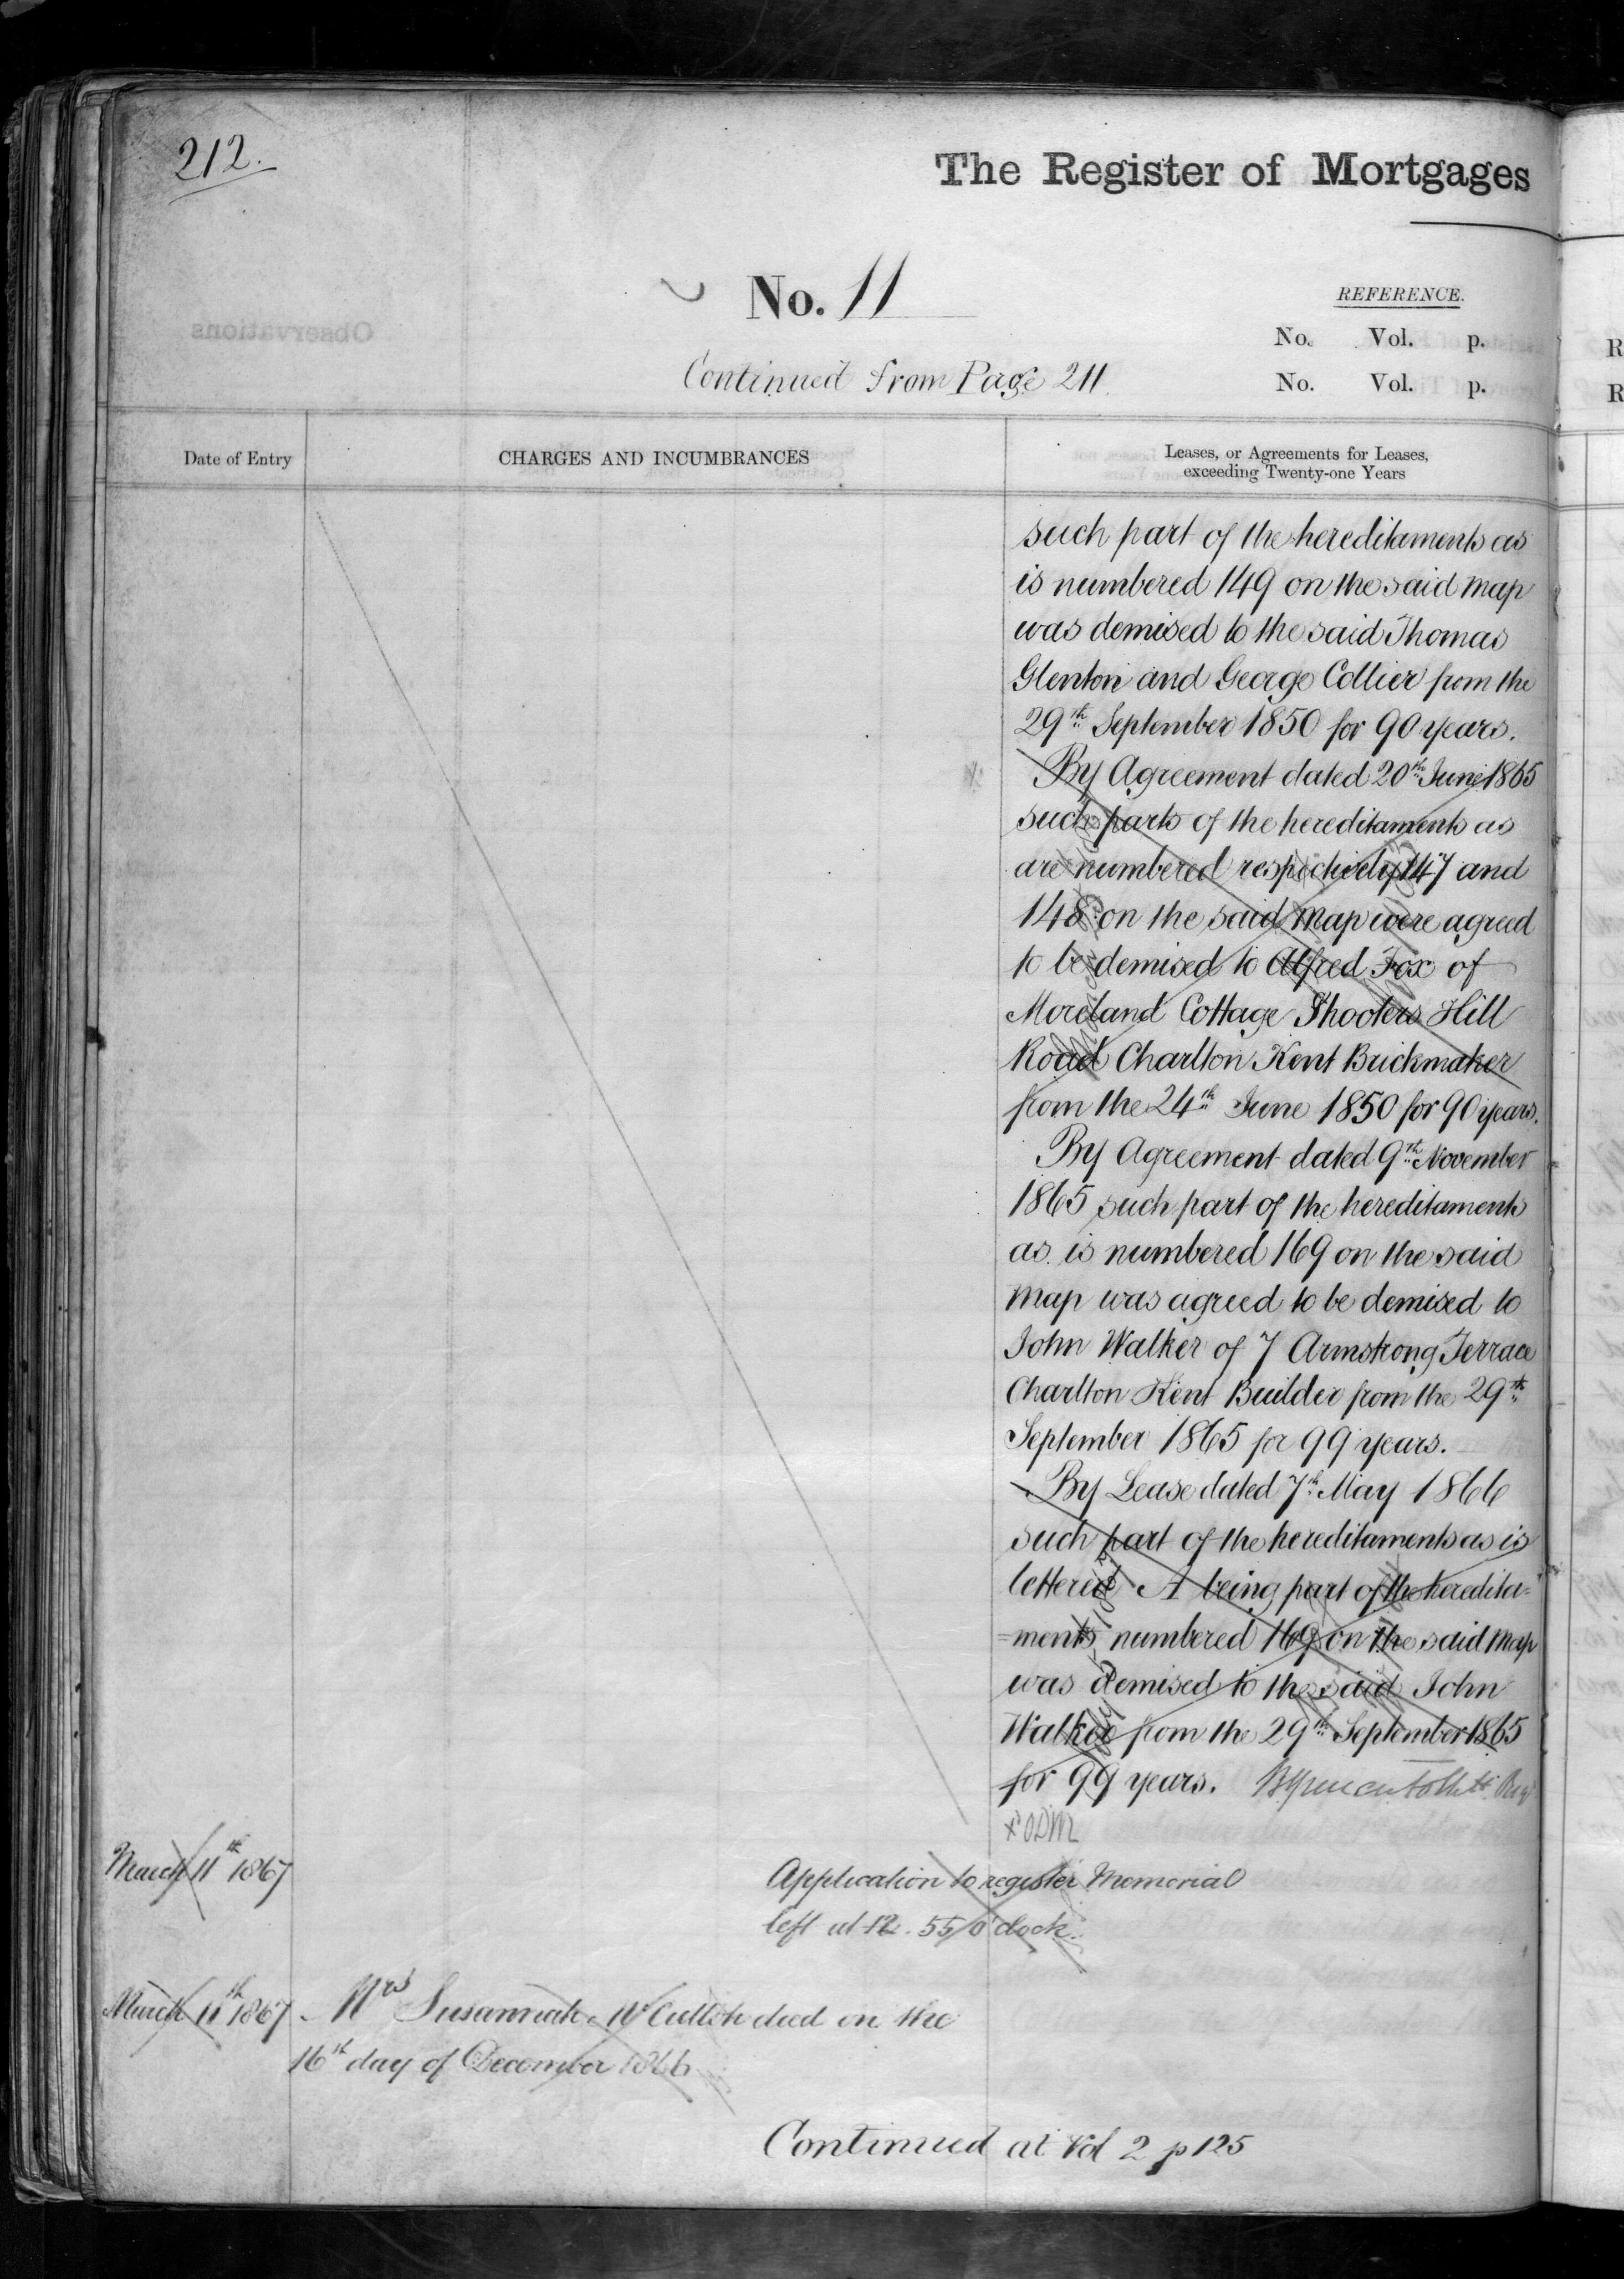 212.
The Register of Mortgages
No. 11
REFERENCE.
No. Vol. p.
Continued from Page 211.
No. Vol. p.
Date of Entry
CHARGES AND INCUMBRANCES
Leases, or Agreements for Leases,
exceeding Twenty-one Years
such part of the hereditaments as
is numbered 149 on the said Map
was demised to the said Thomas
Glenton and George Collier from the
29th September 1850 for 90 years.
By Agreement dated 20th June 1865
such parts of the hereditaments as
are numbered respectively 147 and
148 on the said Map were agreed
to be demised to Alfred Fox of
Moreland Cottage Shooters Hill
Road Charlton Kent Brickmaker
from the 24th June 1850 for 90 years.
By Agreement dated 9th November
1865 such part of the hereditaments
as is numbered 169 on the said
Map was agreed to be demised to
John Walker of 7 Armstrong Terrace
Charlton Kent Builder from the 29th
September 1865 for 99 years.
By Lease dated 7th May 1866
such part of the hereditaments as is
lettered A being part of the heredita=
=ments numbered 169 on the said Map
was demised to the said John
Walker from the 29th September 1865
for 99 years.
March 11th 1867
Application to register Memorial
left at 12.55 o'clock.
March 11th 1867
Mrs Susannah died on the
16th day of December 1866
Continued at Vol 2 p 125